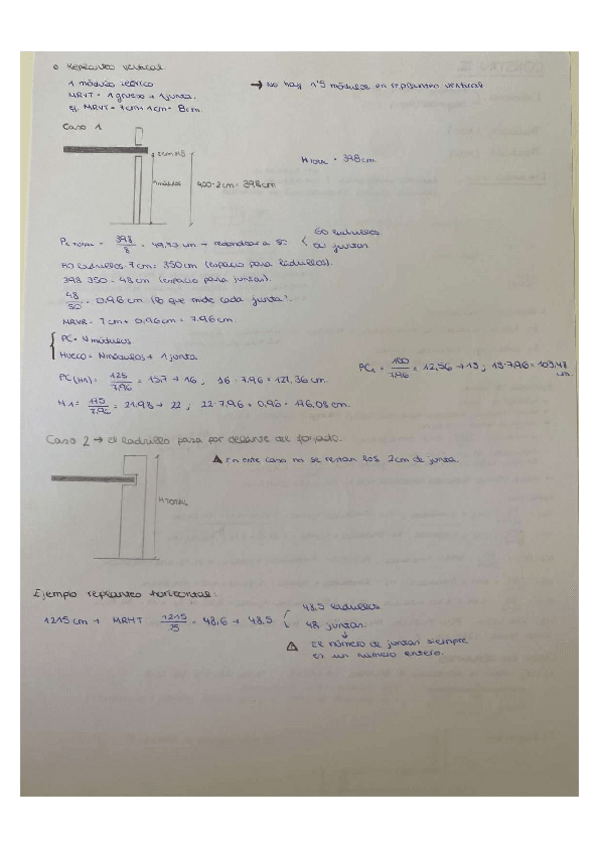 o Replanteo vertical.
1 módulo teórico
MRVT = 1 grueso + 1 junta.
ej. MRVT = 7cm+1cm = 8cm.
→ No hay 1'5 módulos en replanteo vertical
Caso 1
módulos
400-2cm = 398cm
H TOTAL = 398cm.
398/8 = 49,75 un → redondear a 50
50 ladrillos
50 juntas
50 ladrillos. 7cm = 350cm (espacio para ladrillos).
398-350 = 48cm (espacio para juntas).
48/50 = 0,96cm (lo que mide cada junta).
MRVR = 7cm + 0,96cm = 7,96cm.
PC = N módulos.
HUECO = N módulos + 1 junta.
PC(H1) = 125/7,96 = 15,7 → 16 ; 16 · 7,96 = 127,36cm.
PC1 = 100/7,96 = 12,56 → 13 ; 13·7,96 = 103,48 cm.
H1 = 175/7,96 = 21,98 → 22 ; 22·7,96 + 0,96 = 176,08cm.
Caso 2 → el ladrillo pasa por delante del forjado.
En este caso no se restan los 2cm de junta.
H TOTAL
Ejemplo replanteo horizontal:
1215cm + MRHT 1215/25 = 48,6 → 48,5
48,5 ladrillos
48 juntas.
El número de juntas siempre
es un número entero.